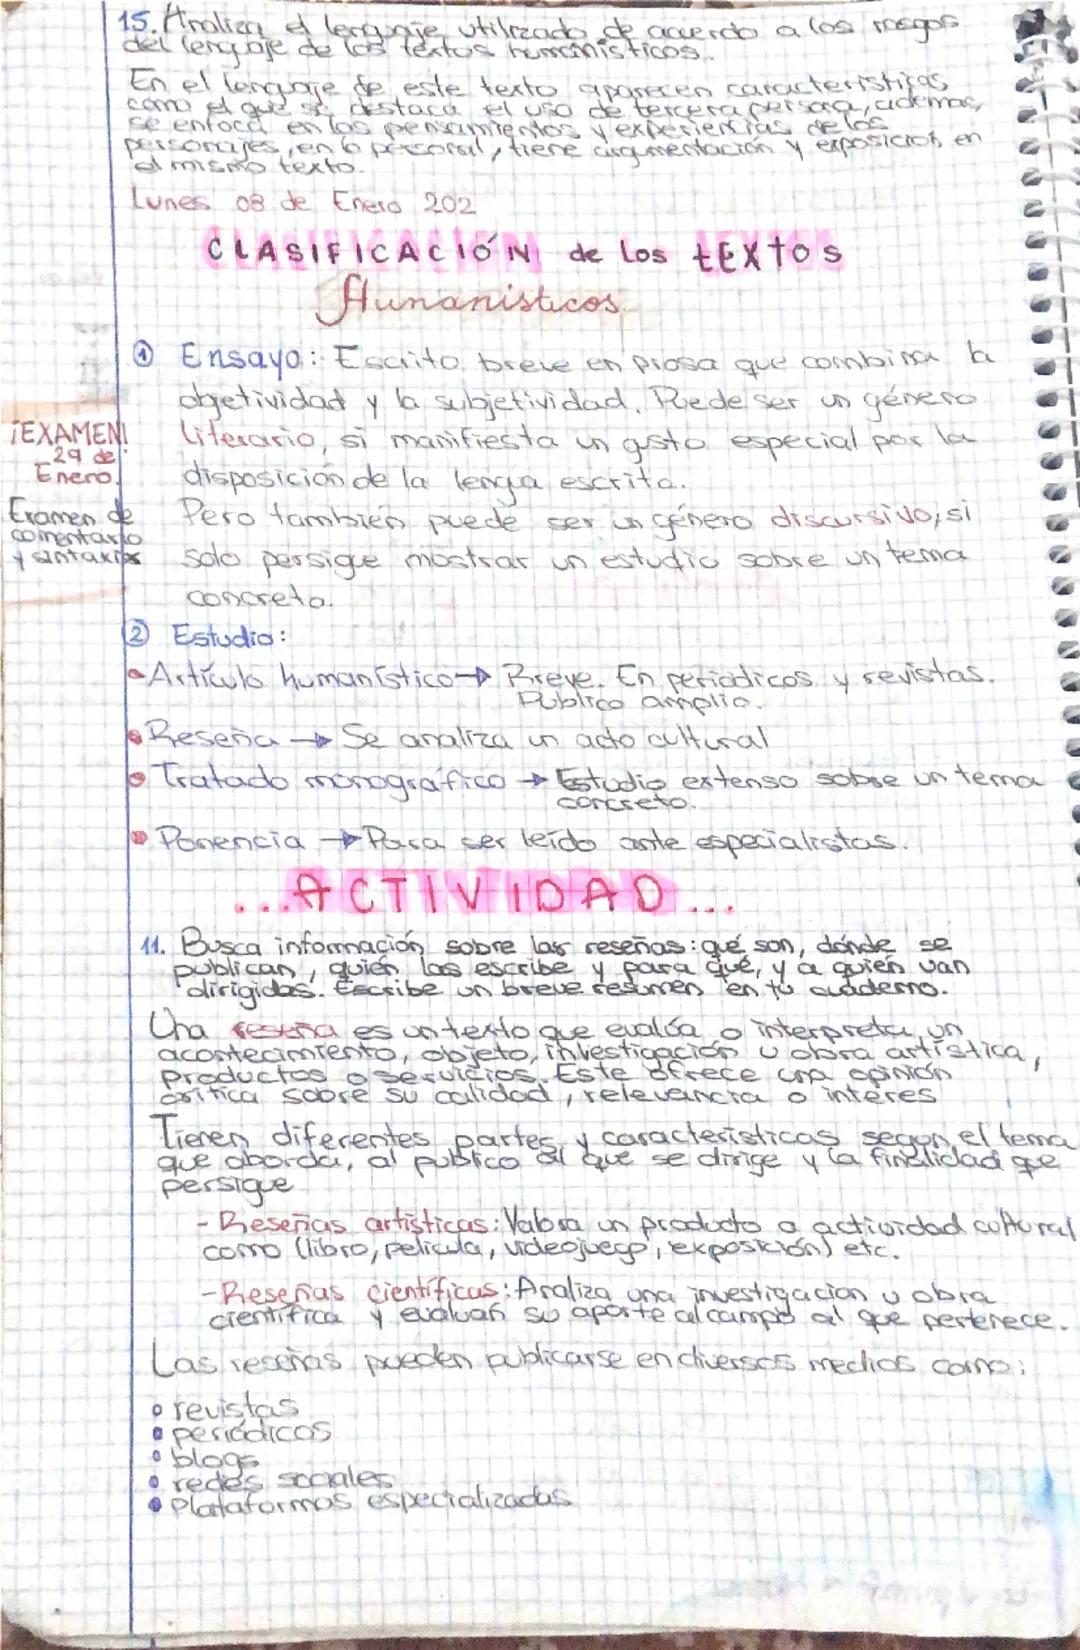 15. Analiza el lenguaje utilizado de acuerdo a los rasgos
del lenguaje de los textos humanísticos.
En el lenguaje de este texto aparecen características
como el que se destaca el uso de tercera persona, además,
se enfoca en los pensamientos y experiencias de los
personajes, en lo personal, tiene argumentación y exposición en
el mismo texto.
Lunes 08 de Enero 202
CLASIFICACIÓN de los tEXtos
Humanísticos.
① Ensayo: Escrito breve en prosa que combina la
objetividad y la subjetividad. Puede ser un género
literario, si manifiesta un gusto especial por la
disposición de la lengua escrita.
Pero también puede ser un género discursivo, si
solo persigue mostrar un estudio sobre un tema
concreto.
¡EXAMEN!
29 de
Enero.
Examen de
comentario
y sintaxis
② Estudio:
• Artículo humanístico → Breve. En periódicos y revistas.
Público amplio.
• Reseña → Se analiza un acto cultural
• Tratado monográfico → Estudio extenso sobre un tema
concreto.
• Ponencia → Para ser leído ante especialistas.
...ACTIVIDAD...
11. Busca información sobre las reseñas: qué son, dónde se
publican, quién las escribe y para qué, y a quién van
dirigidas. Escribe un breve resumen en tu cuaderno.
Una reseña es un texto que evalúa o interpreta un
acontecimiento, objeto, investigación u obra artística,
productos o servicios. Este ofrece una opinión
crítica sobre su calidad, relevancia o interés
Tienen diferentes partes y características según el tema
que aborda, al público al que se dirige y la finalidad que
persigue
- Reseñas artísticas: Valora un producto o actividad cultural
como (libro, película, videojuego, exposición) etc.
- Reseñas científicas: Analiza una investigación u obra
científica y evaluan su aporte al campo al que pertenece.
Las reseñas pueden publicarse en diversos medios como:
• revistas
• periódicos
• blogs
• redes sociales
• Plataformas especializadas